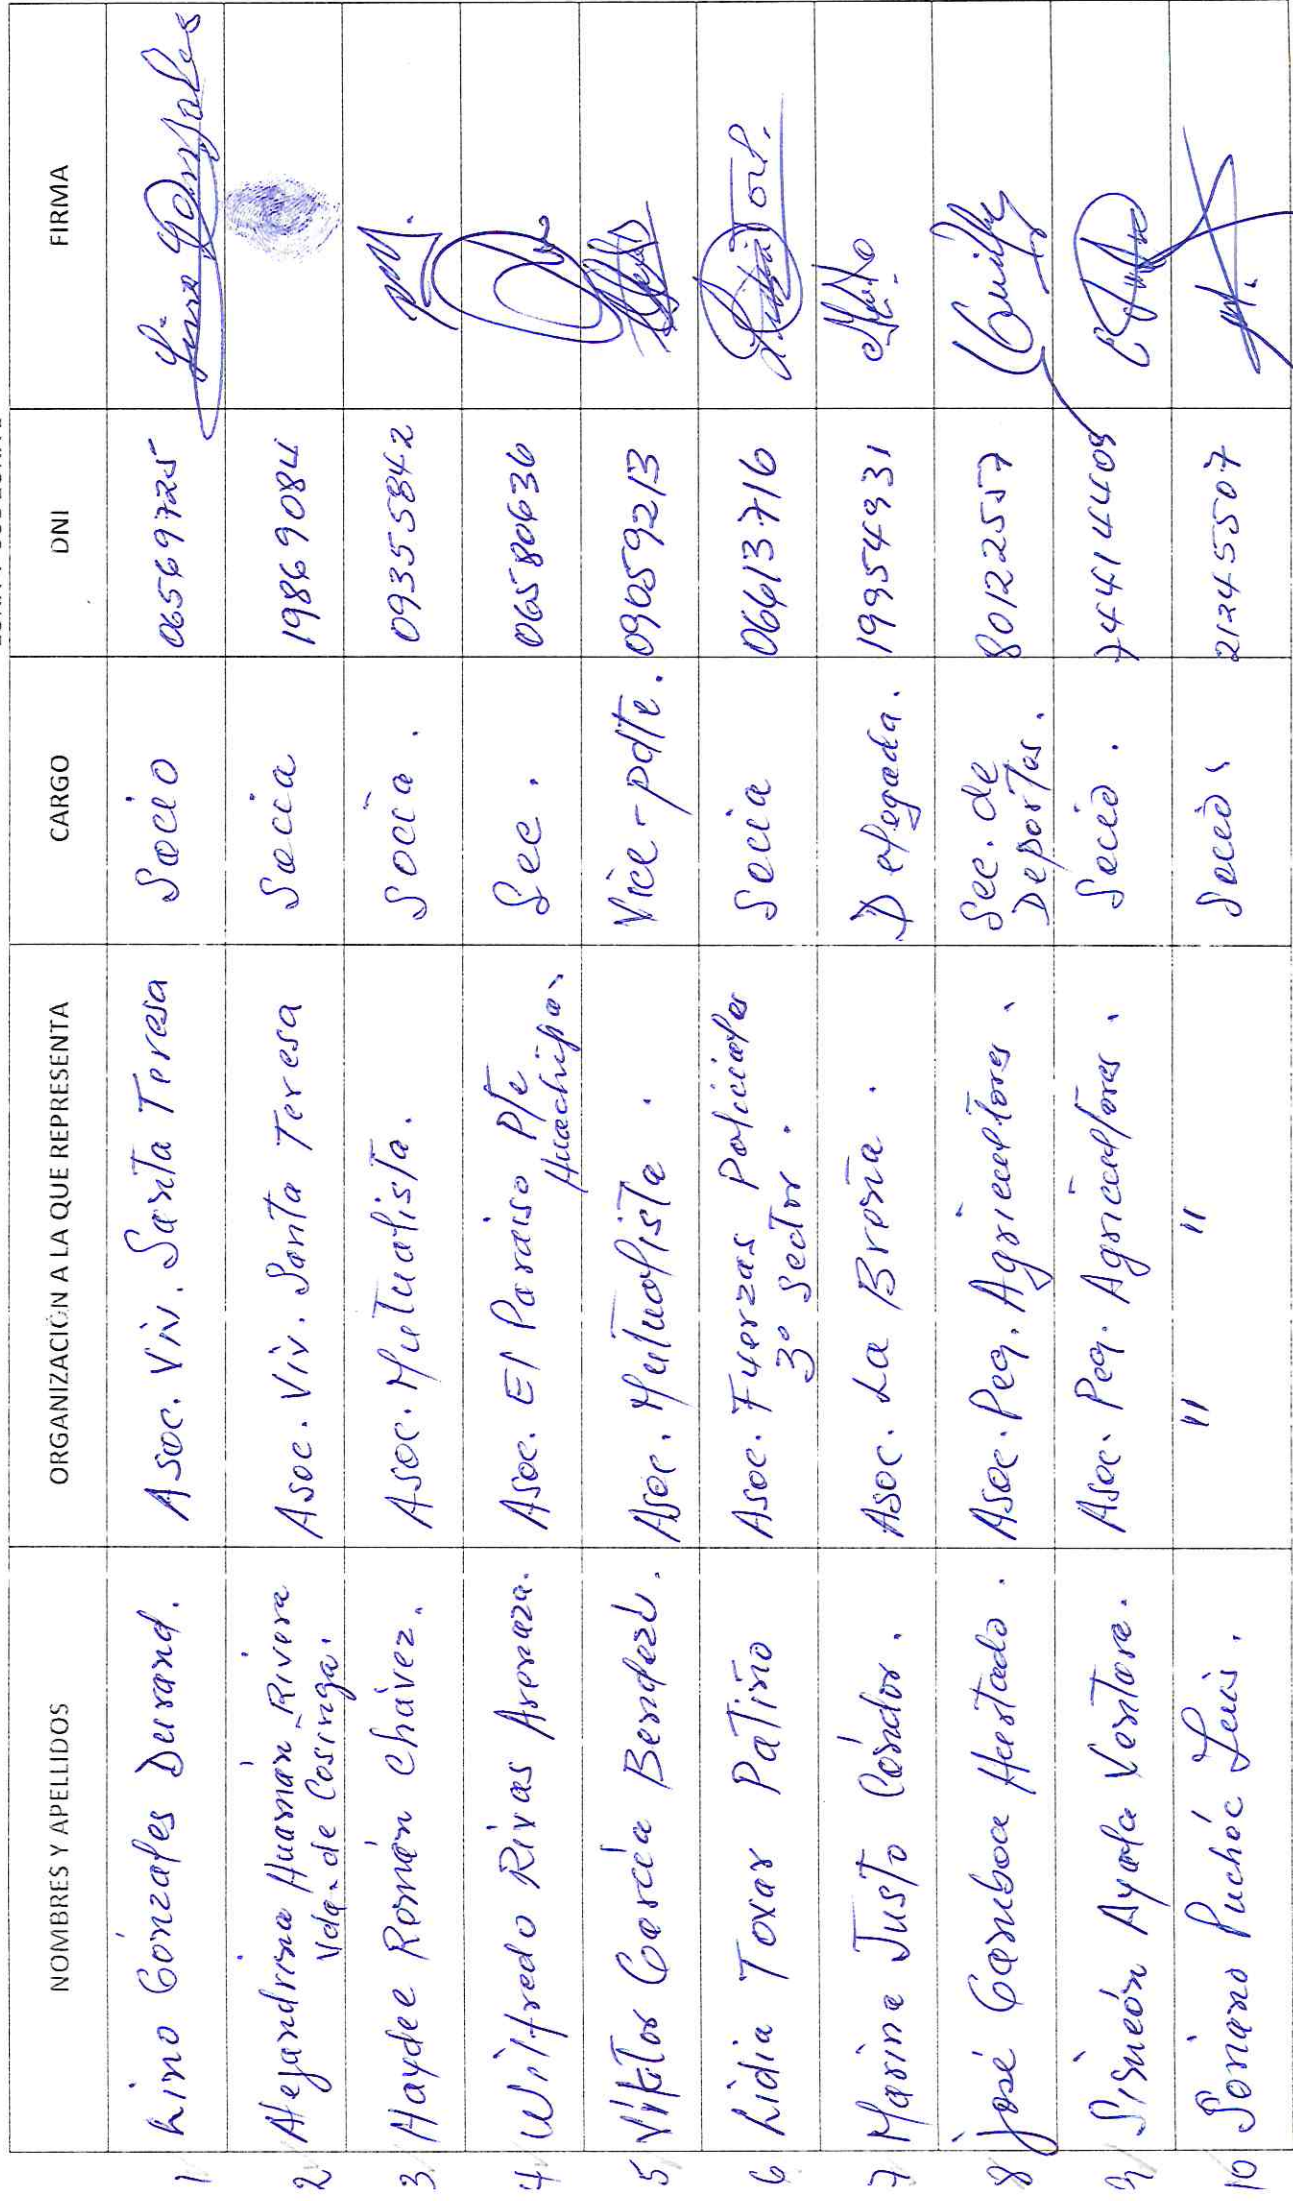 NOMBRES Y APELLIDOS ORGANIZACIÓN A LA QUE REPRESENTA CARGO DNI FIRMA
1 Lino Gónzales Durand. Asoc. Viv. Santa Teresa Socio 06569725
2 Alejandrina Huamán Rivera Asoc. Viv. Santa Teresa Socia 19869084
Vda. de Cosinga.
3 Haydee Román Chávez. Asoc. Mutualista. Socia. 09355842
4 Wilfredo Rivas Aronaza. Asoc. El Paraiso Pte Sec. 06580636
Huachipa.
5 Víktor García Bendezú. Asoc. Mutualista. Vice-pdte. 09059213
6 Lidia Toxar Patiño Asoc. Fuerzas Policiales Socia 06613716
3° Sector.
7 Marina Justo Cóndor. Asoc. La Breña. Delegada. 19954931
8 José Gamboa Hurtado. Asoc. Peq. Agricultores. Sec. de 80122557
Deportes.
9 Simeón Ayala Ventura. Asoc. Peq. Agricultores. Socio. 74414409
10 Soriano Puchóc Luis. " " Socio. 21245507